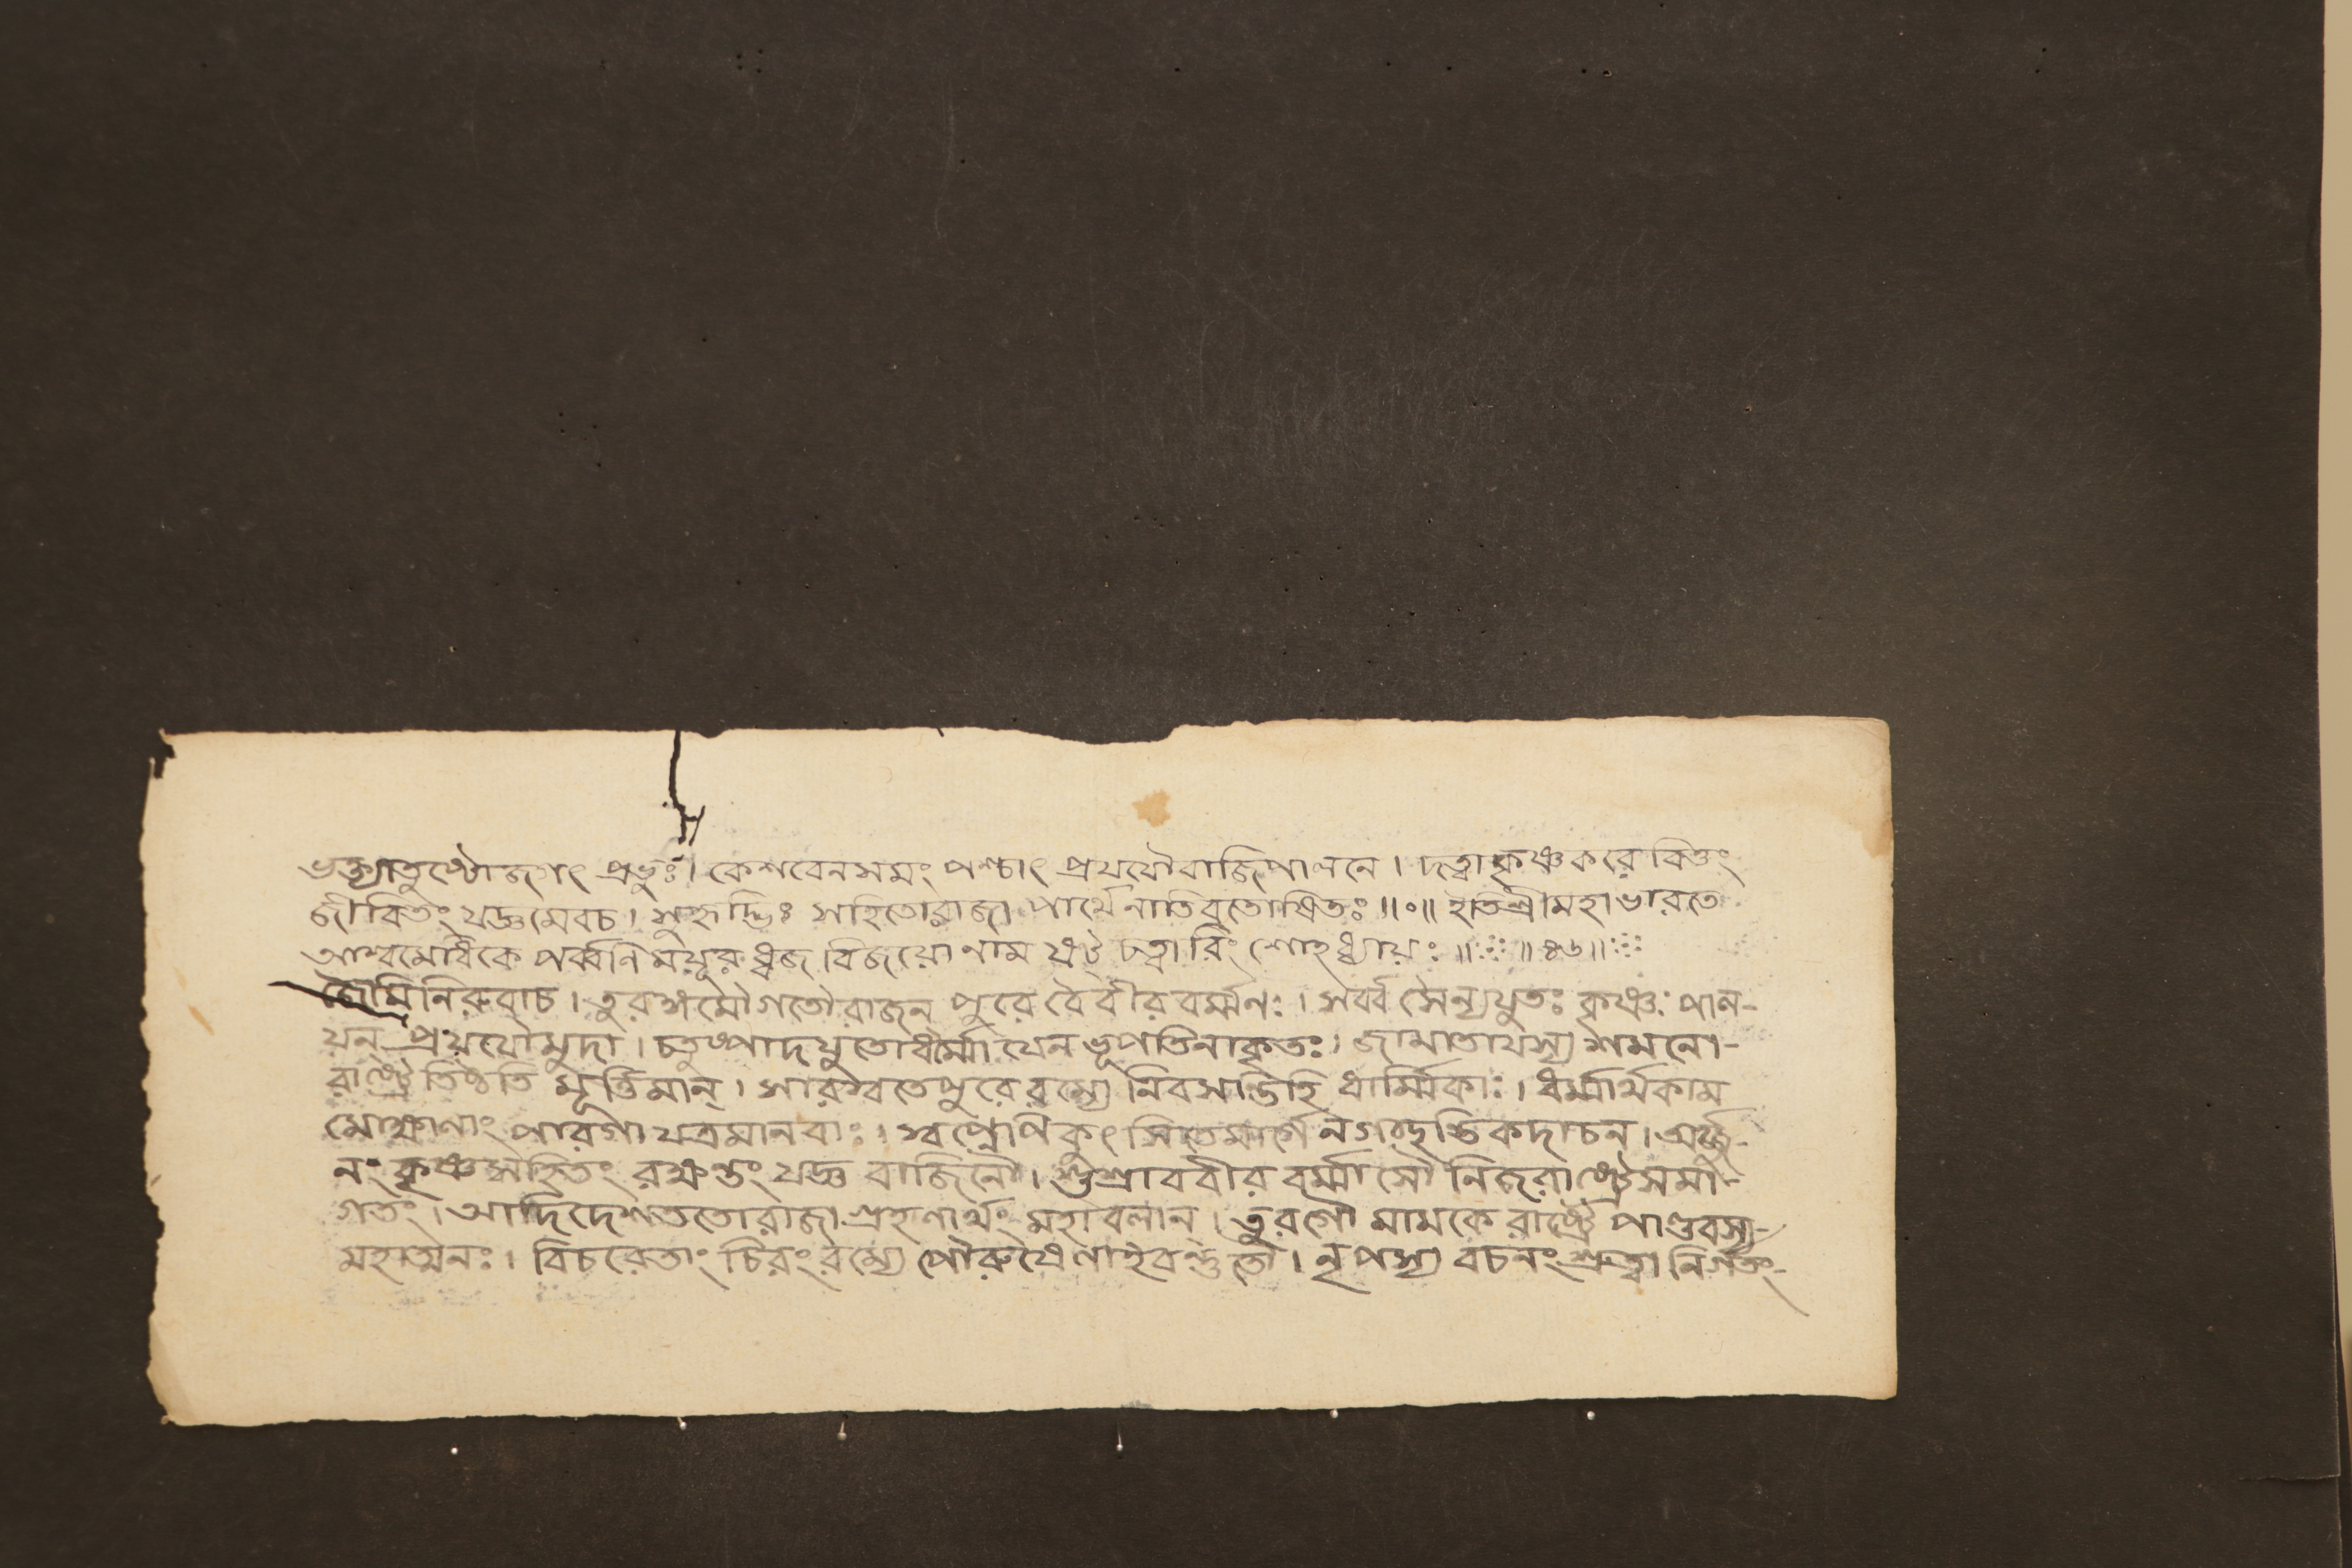 ভক্ত্যাতুষ্টোজগৎ প্রভুঃ। কেশবেনসমং পশ্চাৎ প্রযযৌবাজিপালনে। দত্বাকৃষ্ণকরেবিত্তং
জীবিতং যজ্ঞমেবচ। সুহৃদ্ভিঃ সহিতোরাজা পার্থেনাতিবতোষিতঃ॥०॥ ইতিশ্রীমহাভারতে
আশ্বমেধিকে পর্ব্বণি ময়ূরধ্বজ বিজয়োনাম ষট্ চত্বারিংশোঽধ্যায়ঃ॥ ॥৪৬॥
জৈমিনিরুবাচ। তুরঙ্গমৌগতৌরাজন্ পুরে বৈবীরবর্ম্মনঃ। সর্ব্বসৈন্যযুতঃ কৃষ্ণঃ পাল-
য়ন্ প্রযযৌমুদা। চতুষ্পাদযুতোধর্ম্মো যেনভূপতিনাকৃতঃ। জামাতাযস্য শমনো-
রাষ্ট্রে তিষ্ঠতি মূর্ত্তিমান্। সারস্বতেপুরেরম্যে নিবসন্তিহি ধার্ম্মিকাঃ। ধর্ম্মার্থকাম
মোক্ষাণাং পারগা যত্রমানবাঃ। স্বপ্নেপি কুৎসিতেমার্গে নগচ্ছন্তিকদাচন। অর্জ্জু-
নং কৃষ্ণসহিতং রক্ষন্তং যজ্ঞ বাজিনৌ। শুশ্রাববীর বর্ম্মাসৌ নিজরাষ্ট্রেসমা-
গতং। আদিদেশততোরাজা গ্রহণার্থং মহাবলান্। তুরগৌ মামকে রাষ্ট্রে পাণ্ডবস্য-
মহাত্মনঃ। বিচরেতাং চিরংরম্যে পৌরুষেণাহবন্তুতৌ। নৃপস্য বচনংশ্রুত্বা নির্গতং-